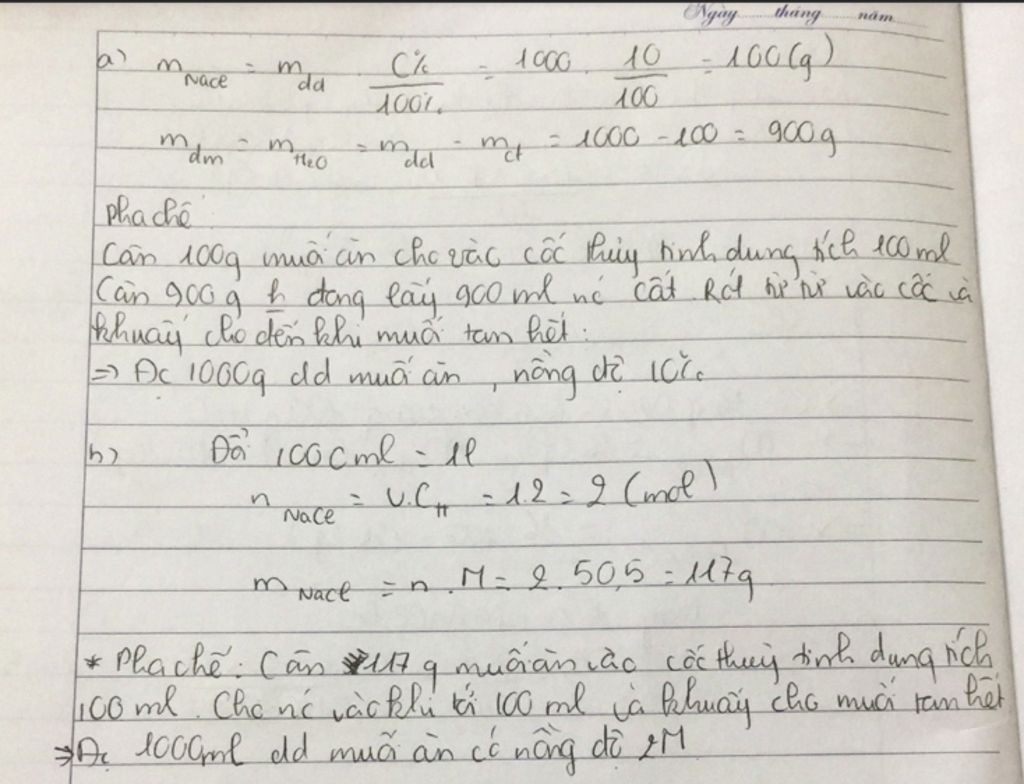 Ngày tháng năm
a) m NaCl = m dd . C% / 100% = 1000 . 10 / 100 = 100 (g)
m dm = m H2O = m dd - m ct = 1000 - 100 = 900g
Pha chế
Cân 100g muối ăn cho vào cốc thủy tinh dung tích 100 ml
Cân 900 g h đong lấy 900 ml nc cất. Rót từ từ vào cốc và
khuấy cho đến khi muối tan hết:
=> Đc 1000g dd muối ăn, nồng độ 10%
b) Đổi 1000ml = 1l
n NaCl = V.CM = 1.2 = 2 (mol)
m NaCl = n . M = 2 . 50,5 = 117g
* Pha chế: Cân 117 g muối ăn vào cốc thuỷ tinh dung tích
100 ml. Cho nc vào khi tới 100 ml và khuấy cho muối tan hết
=> Đc 1000ml dd muối ăn có nồng độ 2M